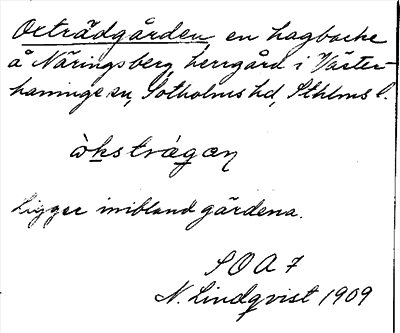 Oxträdgården, en hagbacke
å Näringsberg, herrgård i Väster-
haninge sn, Sotholms hd, Sthlms l.
òkstrágan
Ligger inibland gärdena.
SOA 7
N. Lindqvist 1909